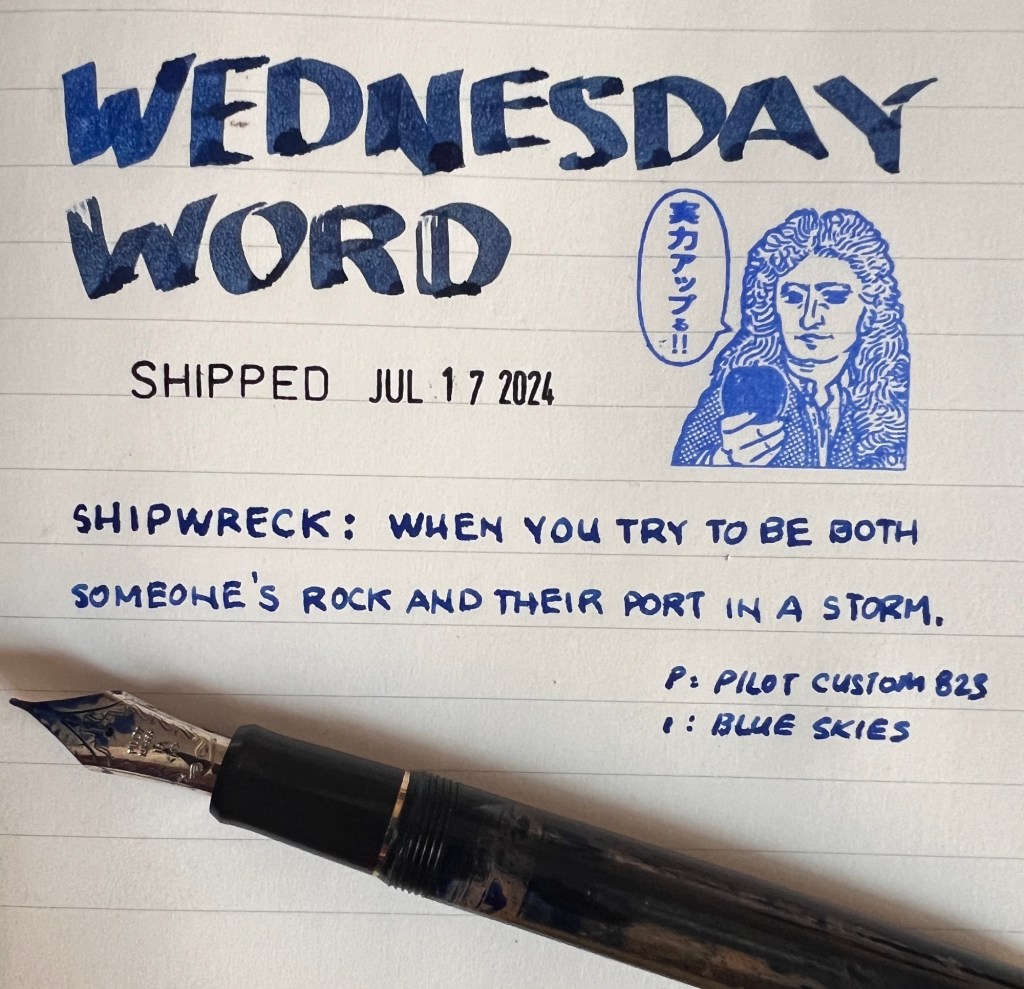 WEDNESDAY
WORD
実力アップ&!!
SHIPPED JUL 17 2024
SHIPWRECK: WHEN YOU TRY TO BE BOTH
SOMEONE'S ROCK AND THEIR PORT IN A STORM.
P: PILOT CUSTOM 823
I: BLUE SKIES